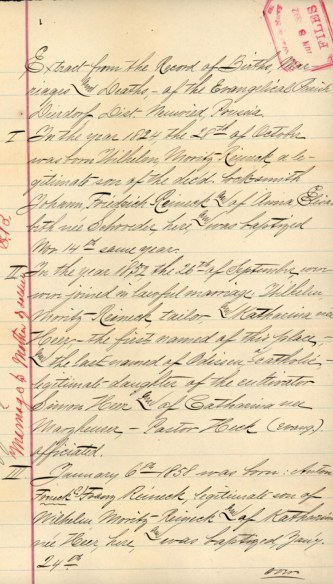 FILES
Extract from the Record of Births, Mar-
riages and Deaths, of the Evangelical Parish
Dierdorf, Dist. Neuwied, Prussia
I In the year 1824, the 28th of October
was born Wilhelm, Moritz Reineck a le-
gitimate son of the locksmith
Johann, Friedrich Reineck and of Anna Eliza-
beth née Schroeder here, and was baptized
Nov 14th same year.
II In the year 1852 the 26th of September
were joined in lawful marriage Wilhelm
Moritz Reineck tailor, and Katharina née
Heer, the first named of this place,
and the last named of Catholic
legitimate daughter of the cultivator
Simon Heer and of Catharina née
Pastor Heck (evang)
officiated.
III January 6th 1858 was born: Anton
Franz Reineck, legitimate son of
Wilhelm, Moritz Reineck and of Katharina
née Heer, here, and was baptized Jany.
24th
Marriage &